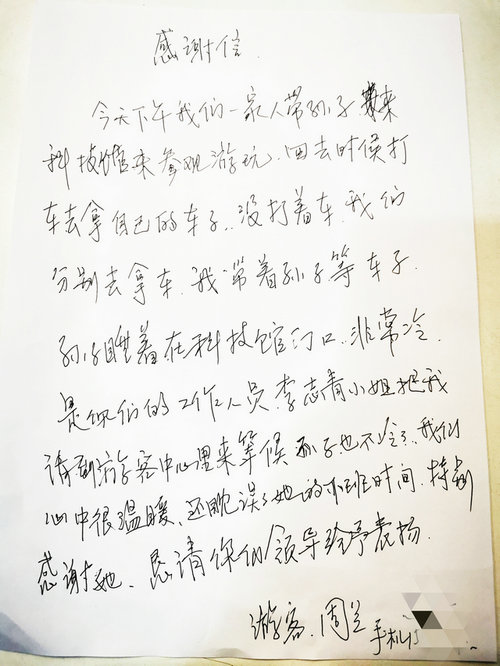 感谢信.
今天下午我们一家人带孙子来
科技馆来参观游玩.回去时候打
车去拿自己的车子.没打着车.我们
分别去拿车.我带着孙子等车子.
孙子睡着在科技馆门口.非常冷.
是你们的工作人员.李志青小姐把我
请到游客中心里来等候孙子也不冷了.我们
心中很温暖、还耽误了她的下班时间.特别
感谢她、恳请你们领导给予表扬.
游客.周兰
手机